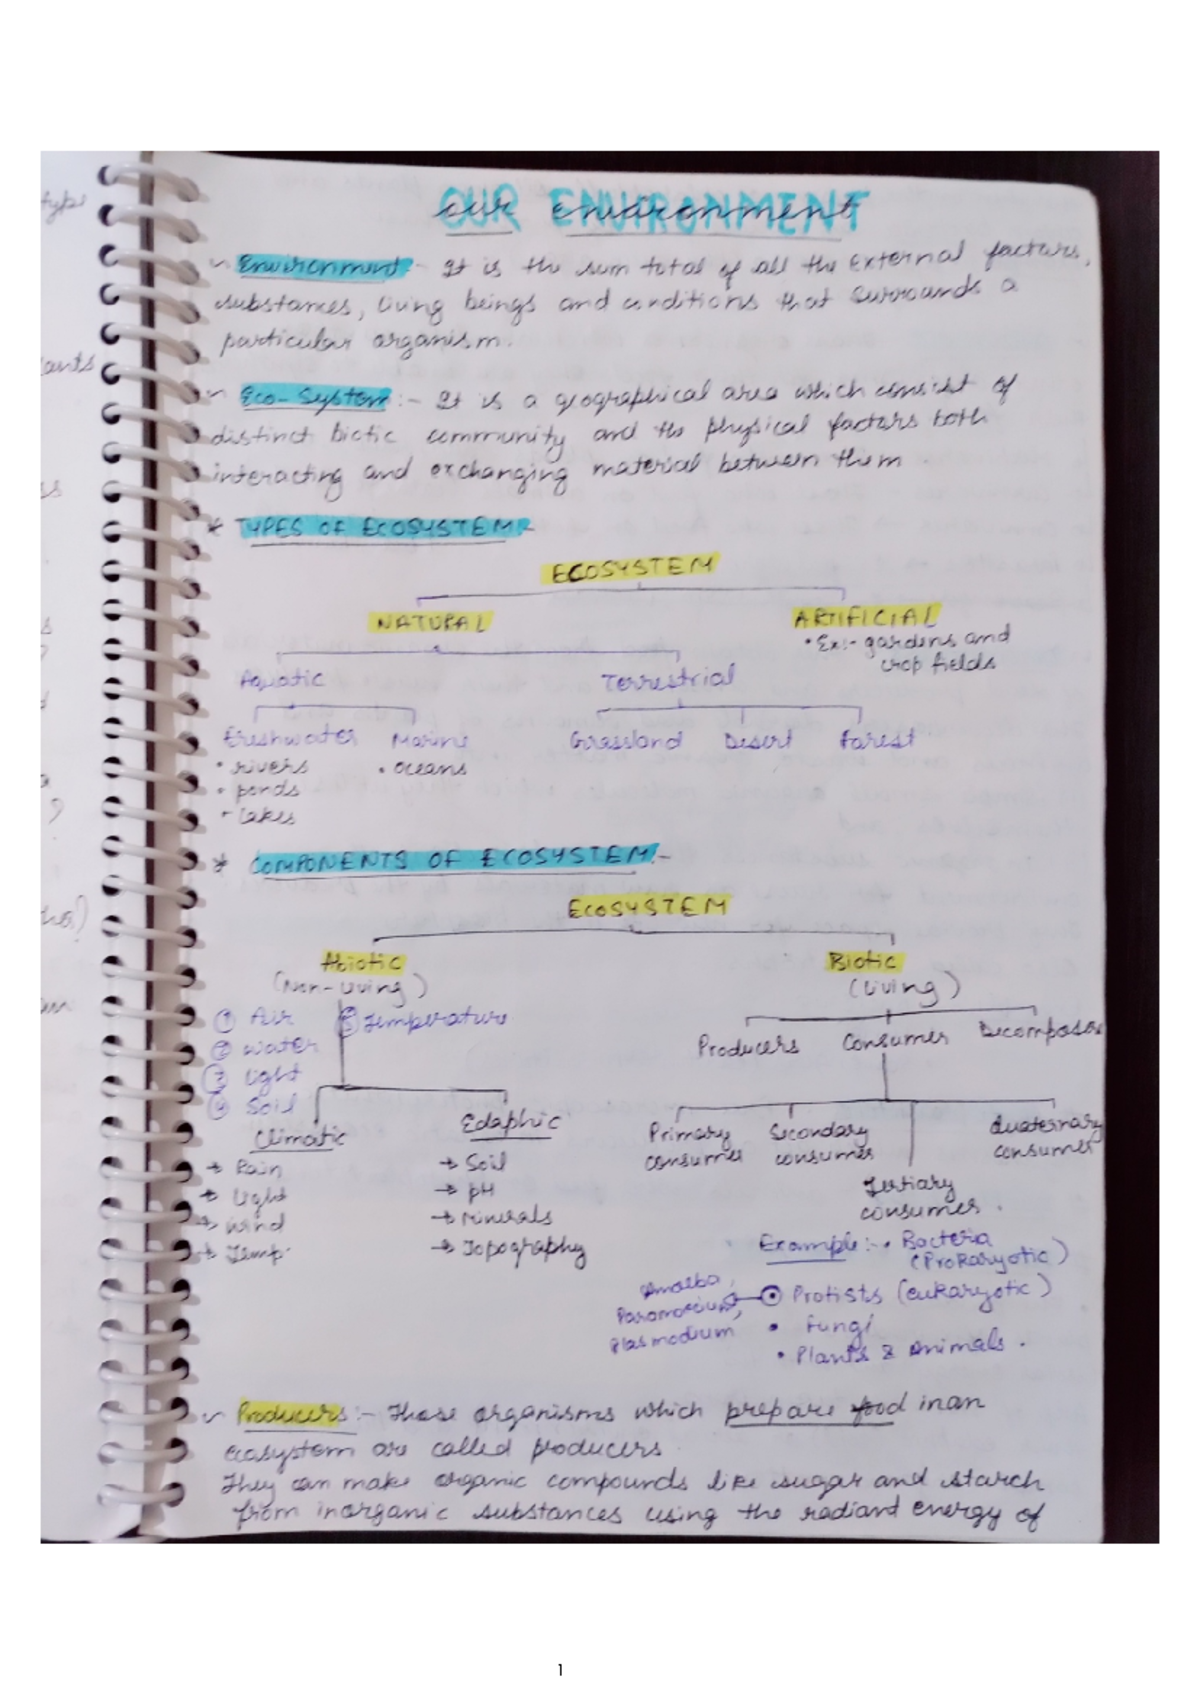 OUR ENVIRONMENT
our environment
~ Environment:- It is the sum total of all the External factors,
substances, living beings and conditions that surrounds a
particular organism.
~ Eco-System:- It is a geographical area which consist of
distinct biotic community and the physical factors both
interacting and exchanging material between them
* TYPES OF ECOSYSTEM:-
ECOSYSTEM
NATURAL
ARTIFICIAL
• Ex:- gardens and
crop fields
Aquatic
Terrestrial
Freshwater
Marine
Grassland
Desert
Forest
• rivers
• oceans
• ponds
• Lakes
* COMPONENTS OF ECOSYSTEM:-
ECOSYSTEM
Abiotic
(Non-living)
Biotic
(Living)
① Air
⑤ Temperature
② Water
③ Light
④ Soil
Producers
Consumer
Decomposer
Climatic
→ Rain
→ Light
→ Wind
→ Temp.
Edaphic
→ Soil
→ pH
→ Minerals
→ Topography
Primary
consumer
Secondary
consumer
Tertiary
consumer.
Quaternary
consumer
Example:- • Bacteria
(Prokaryotic)
Amoeba,
Paramoecium,
Plasmodium
Protists (eukaryotic)
• Fungi
• Plants & Animals.
~ Producers:- Those organisms which prepare food in an
ecasystem are called producers
They can make organic compounds like sugar and starch
from inorganic substances using the radiant energy of
type
ants
1